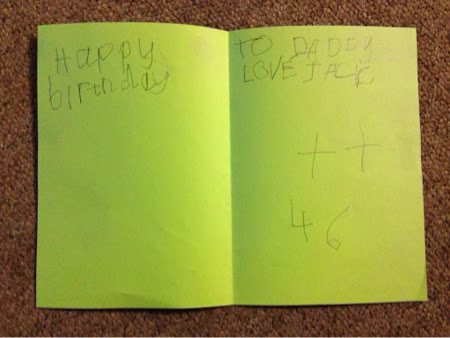 Happy
birthday
TO DADDY
LOVE JACK
++
46